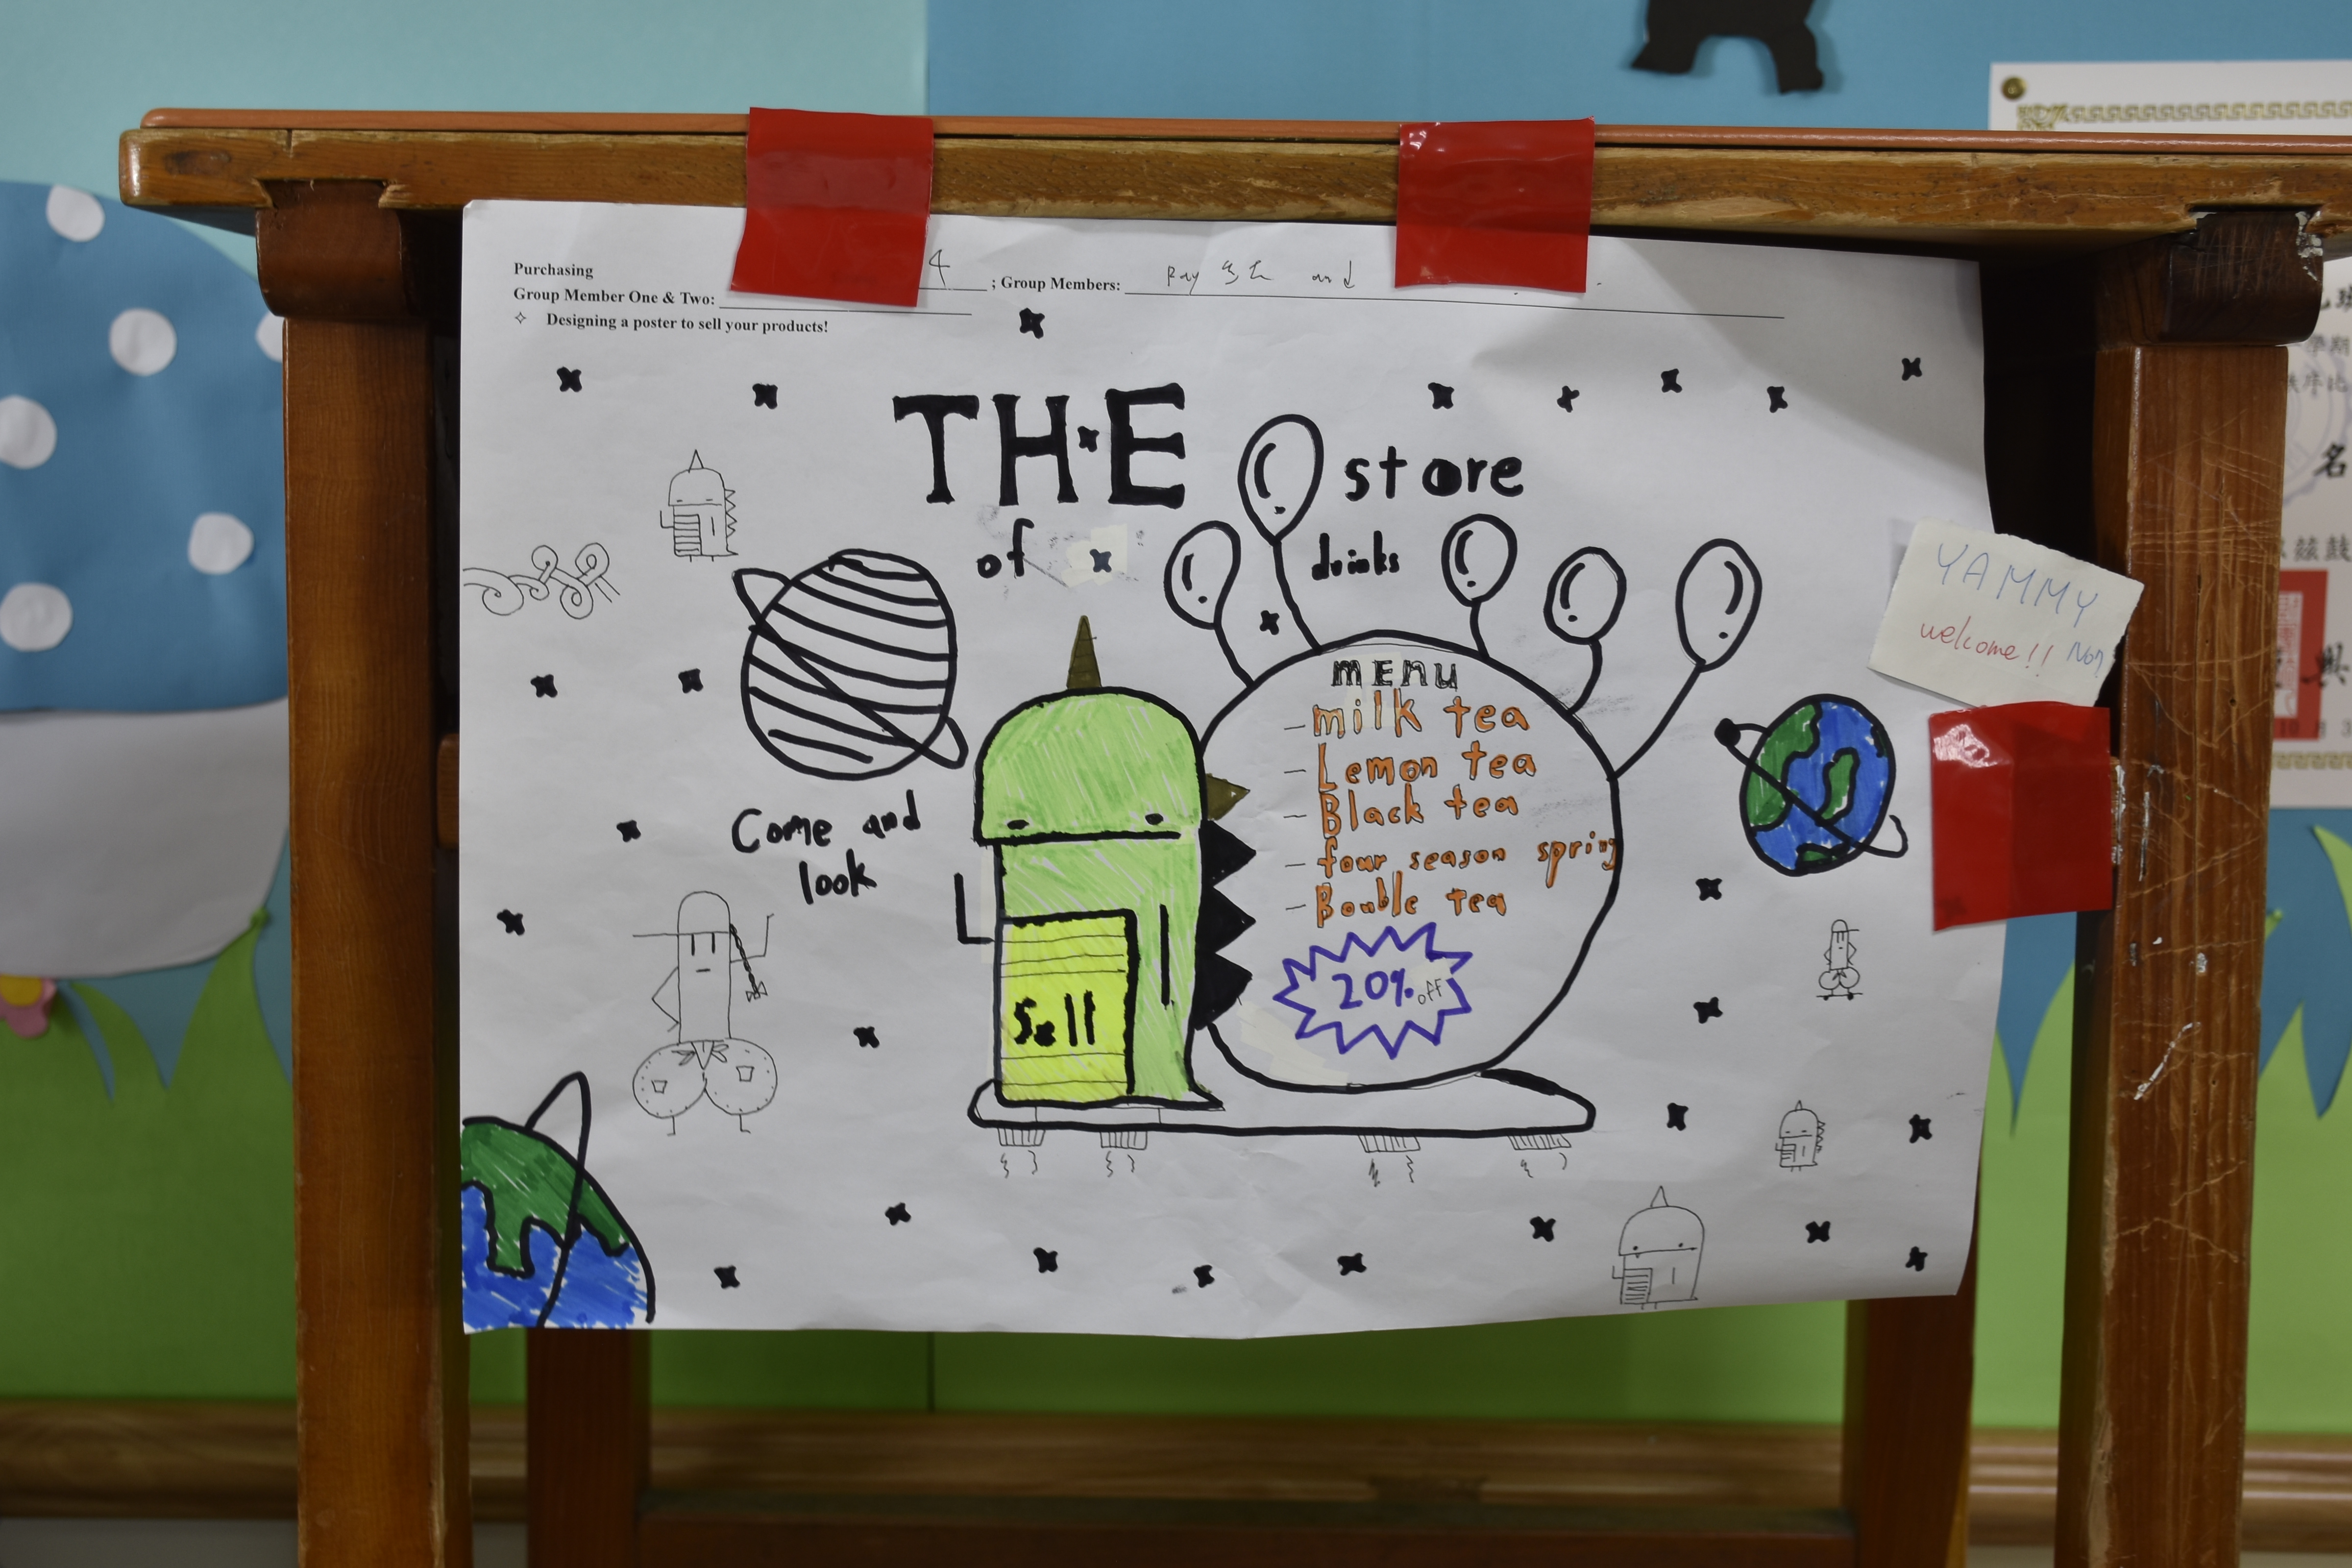 Purchasing
4 ; Group Members: Ray and
Group Member One & Two:
Designing a poster to sell your products!
THE store
of drinks
YAMMY
welcome!!
MEnu
- milk tea
- Lemon tea
- Black tea
- four season spring
- Bouble tea
20% OFF
Come and
look
Sell
名